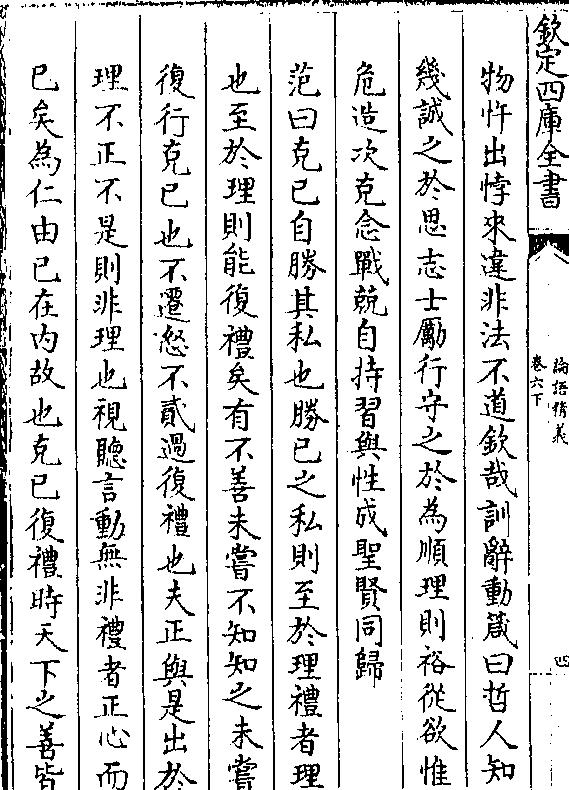 欽定四庫全書
論語精義
卷六下
四
物忤出悖來違非法不道欽哉訓辭動箴曰哲人知
幾誠之於思志士勵行守之於為順理則裕從欲惟
危造次克念戰兢自持習與性成聖賢同歸
范曰克已自勝其私也勝已之私則至於理禮者理
也至於理則能復禮矣有不善未嘗不知知之未嘗
復行克已也不遷怒不貳過復禮也夫正與是出於
理不正不是則非理也視聽言動無非禮者正心而
已矣為仁由已在内故也克已復禮時天下之善皆